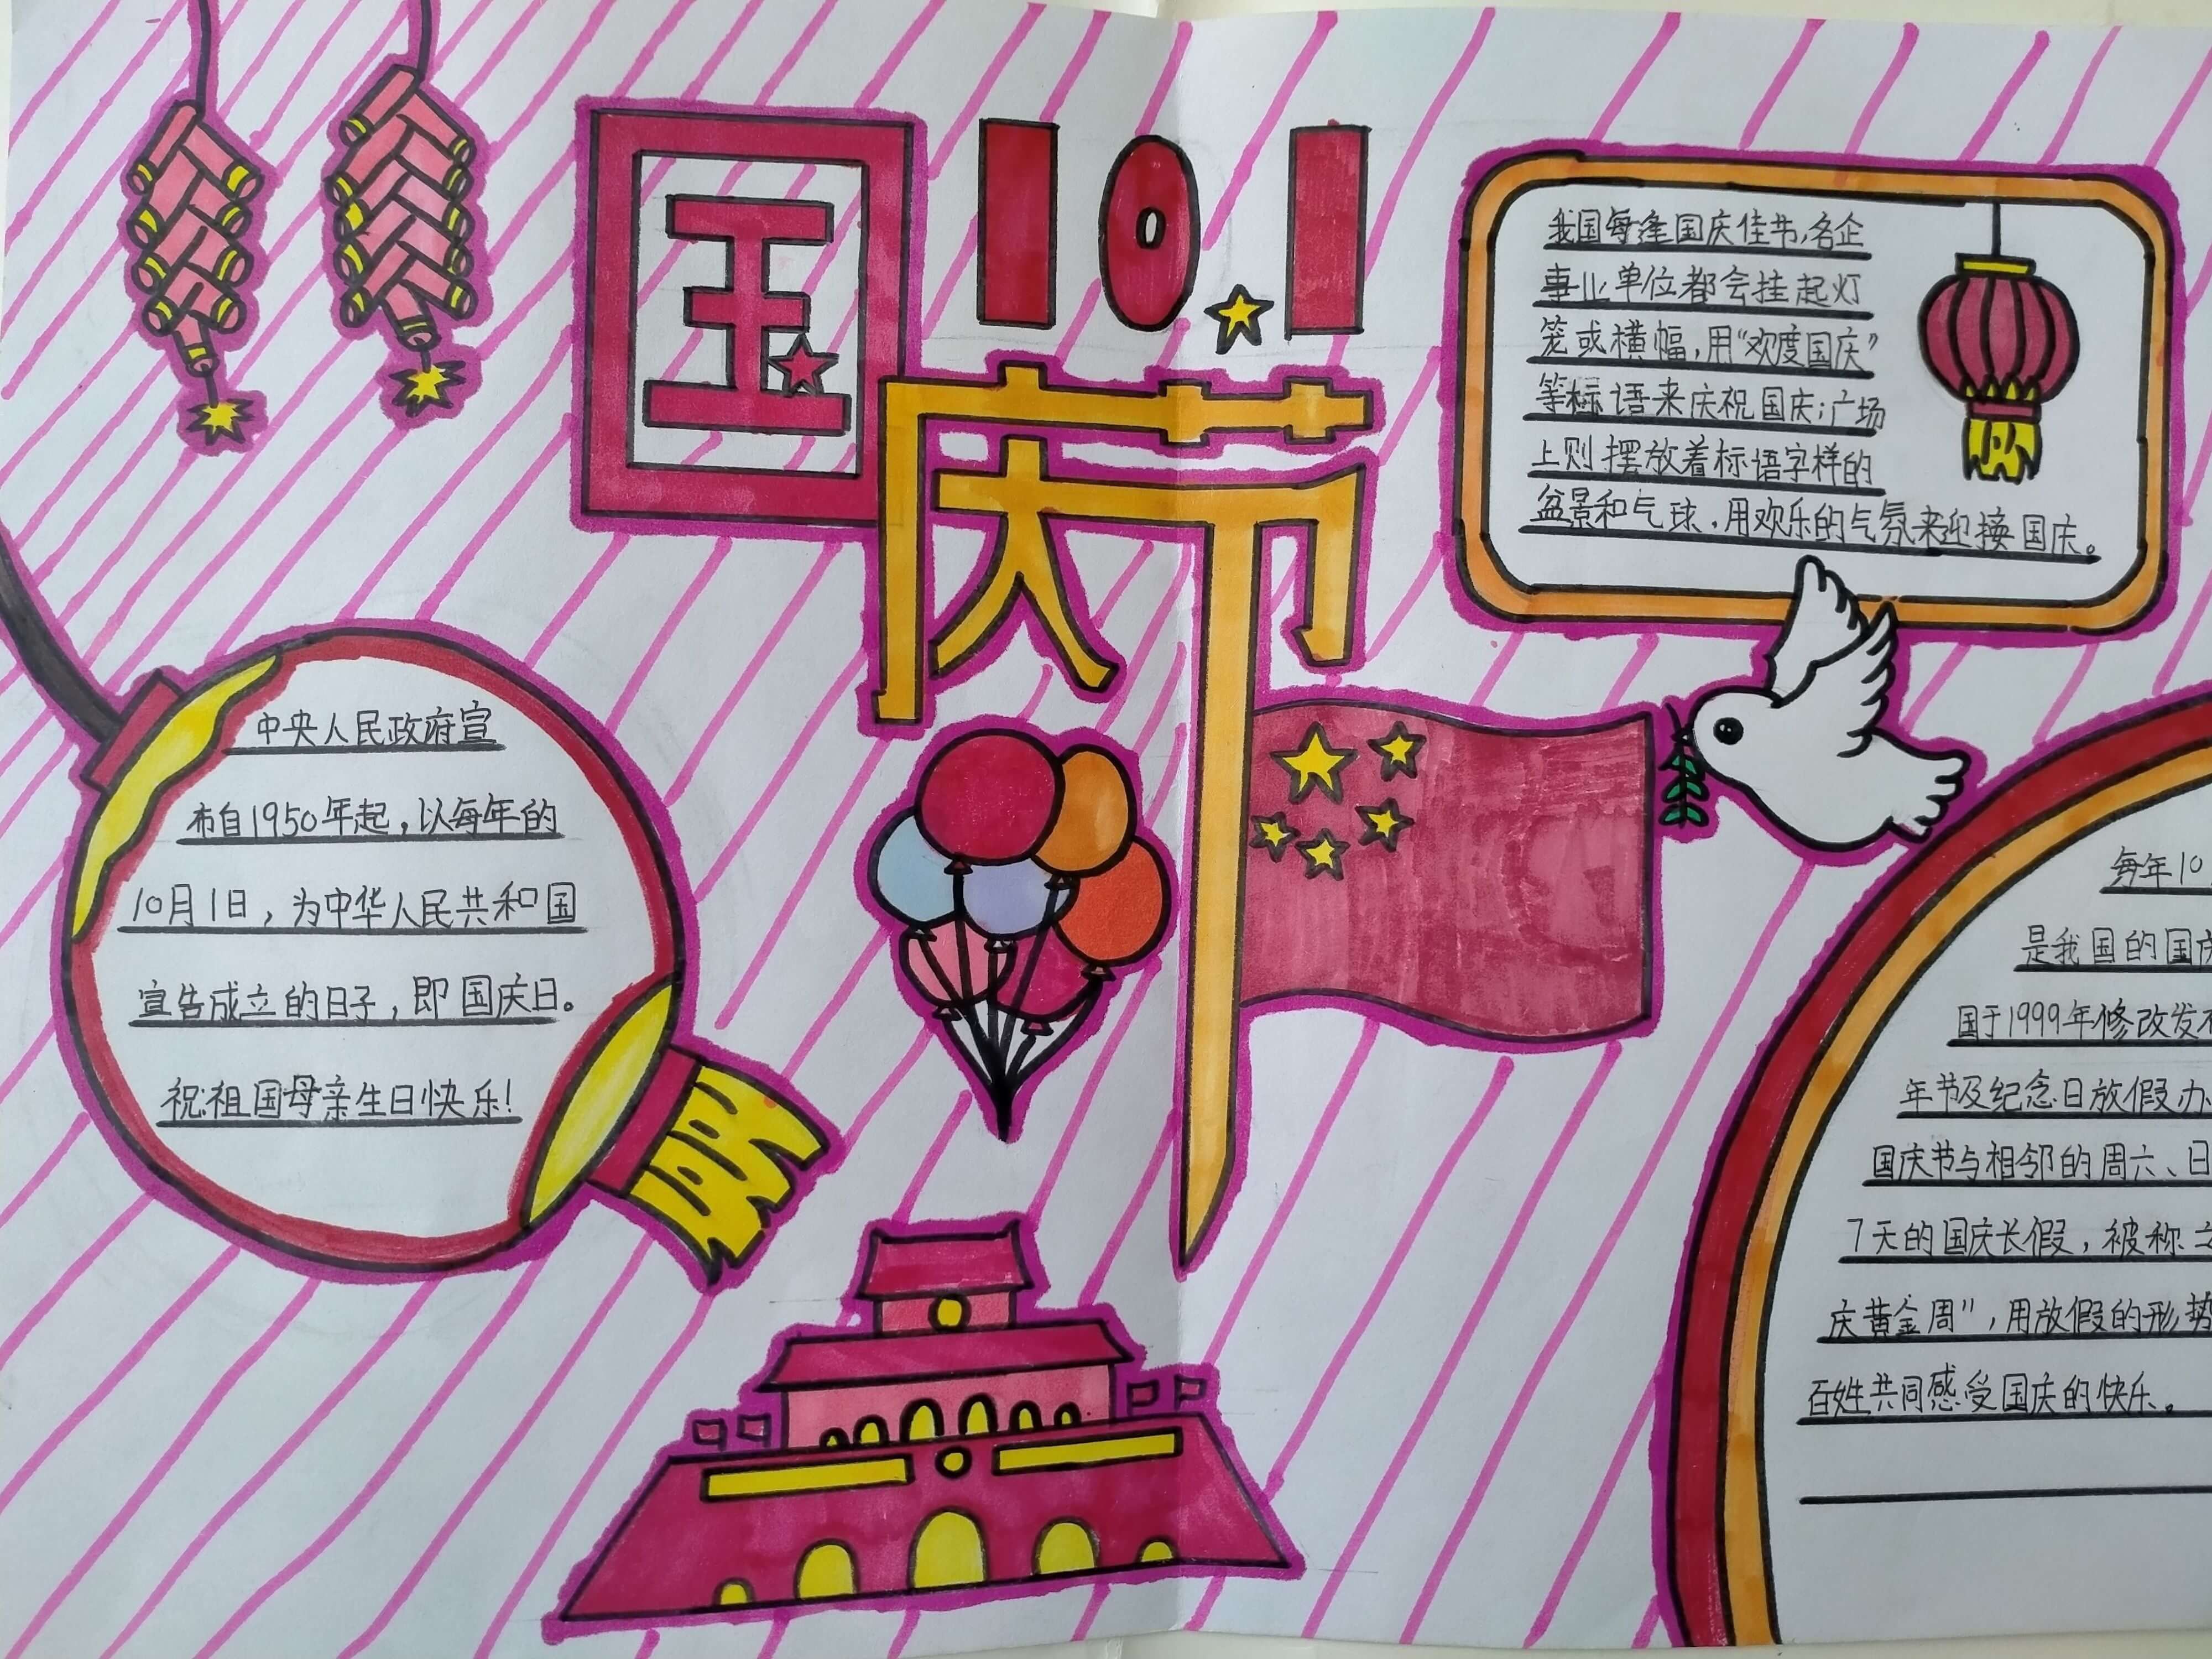 国庆节
10.1
我国每逢国庆佳节,各企
事业单位都会挂起灯
笼或横幅,用“欢度国庆”
等标语来庆祝国庆;广场
上则摆放着标语字样的
盆景和气球,用欢乐的气氛来迎接国庆。
中央人民政府宣
布自1950年起,以每年的
10月1日,为中华人民共和国
宣告成立的日子,即国庆日。
祝:祖国母亲生日快乐!
每年10
是我国的国庆
国于1999年修改发布
年节及纪念日放假办
国庆节与相邻的周六、日
7天的国庆长假,被称
庆黄金周",用放假的形势
百姓共同感受国庆的快乐。